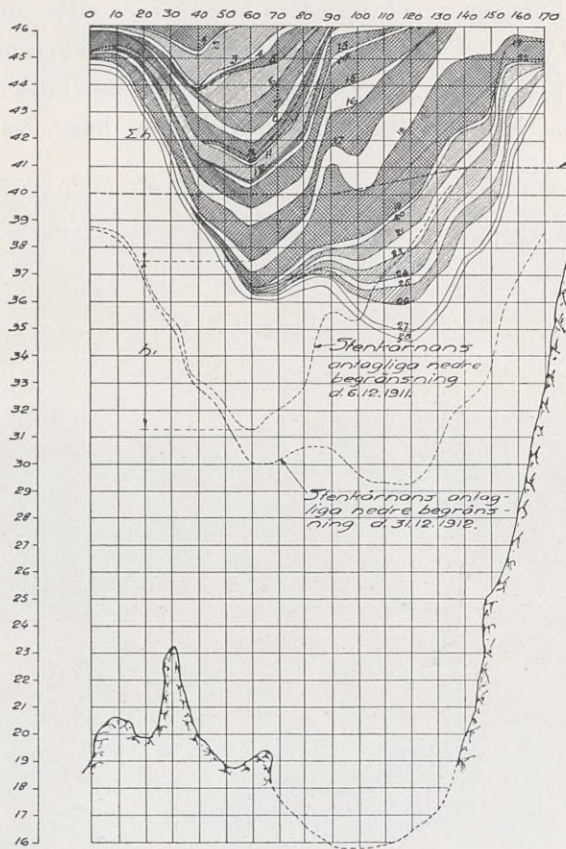 0 10 20 30 40 50 60 70 80 90 100 110 120 130 140 150 160 170
46
45
44
43
42
41
40
39
38
37
36
35
34
33
32
31
30
29
28
27
26
25
24
23
22
21
20
19
18
17
16
Σh
h,
15
16
17
18
19
20
21
23
24
25
26
27
28
Stenkärnans
antagliga nedre
begränsning
d. 6.12.1911.
Stenkärnans antag-
liga nedre begräns-
ning d. 31.12.1912.